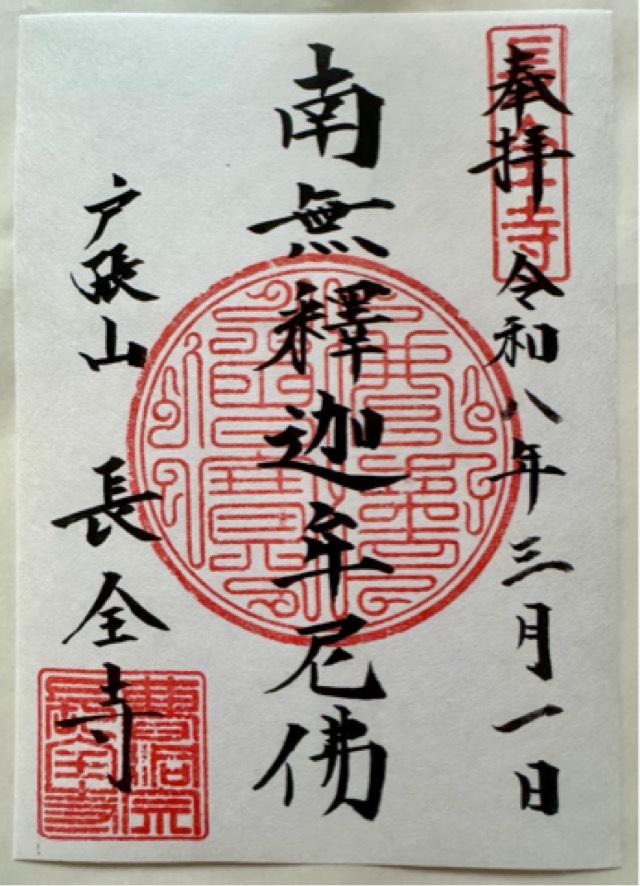 奉拝 令和八年三月一日
南無釋迦牟尼佛
戸張山 長全寺
長全寺